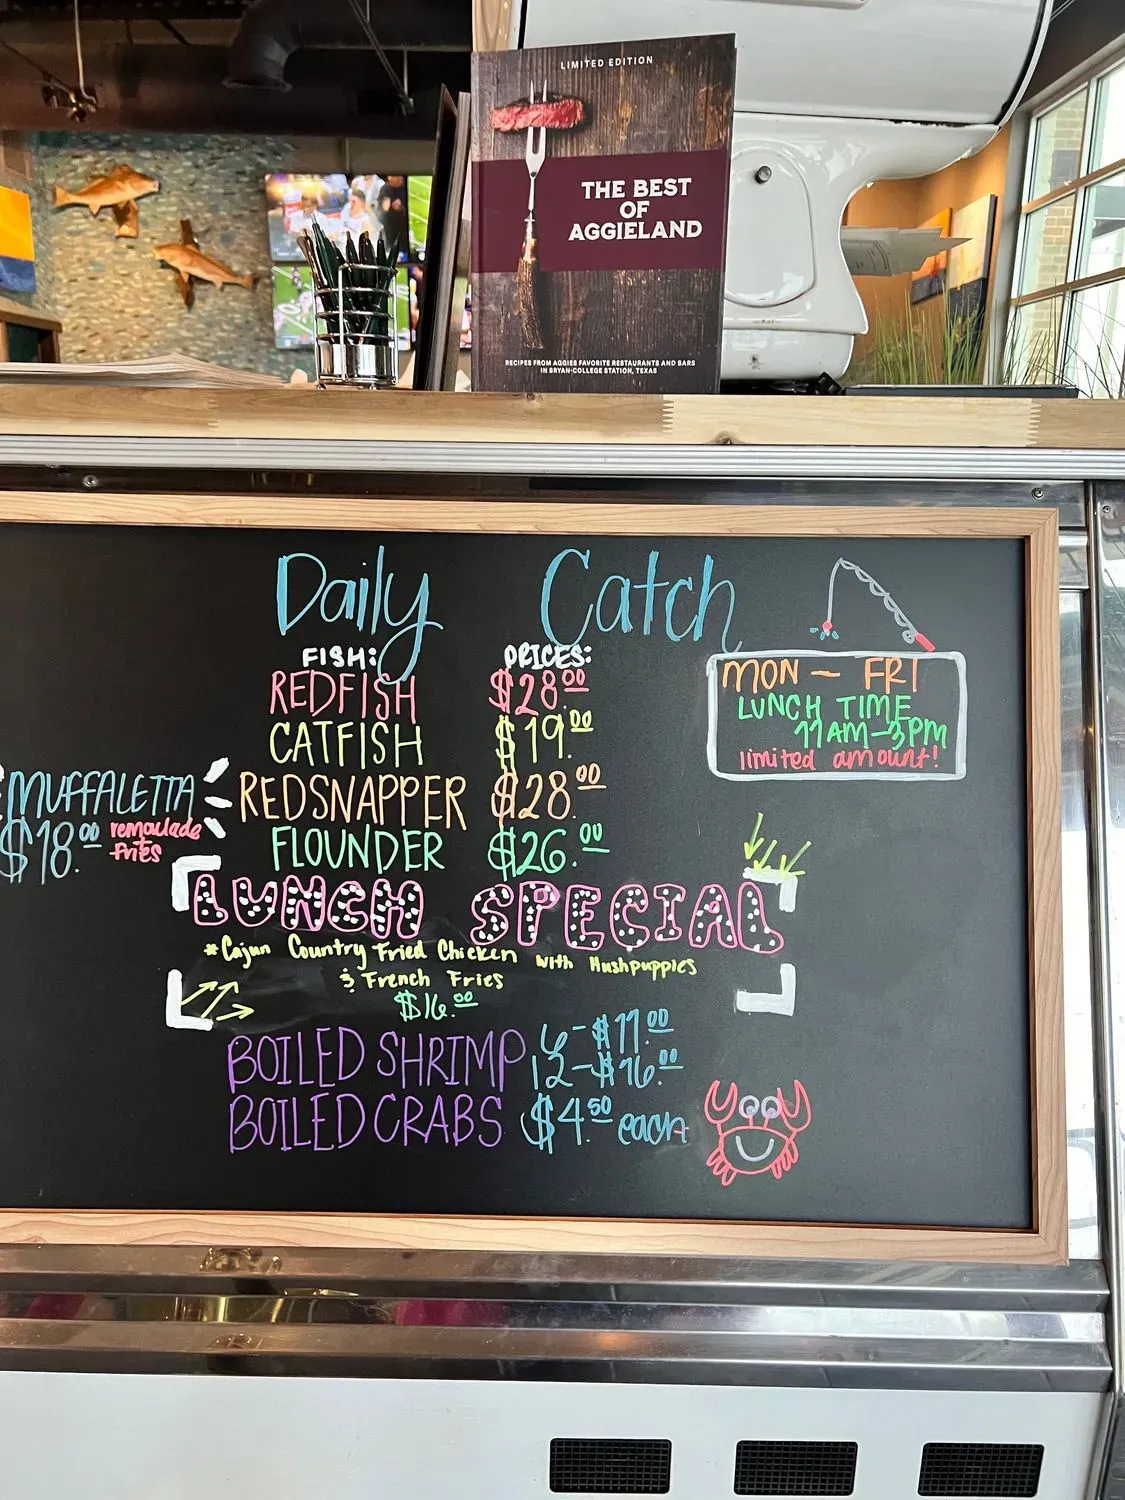 LIMITED EDITION
THE BEST
OF
AGGIELAND
RECIPES FROM AGGIES FAVORITE RESTAURANTS AND BARS
IN BRYAN-COLLEGE STATION, TEXAS
Daily Catch
FISH: PRICES:
REDFISH $28.00
CATFISH $19.00
REDSNAPPER $28.00
FLOUNDER $26.00
MON - FRI
LUNCH TIME
11AM-3PM
limited amount!
MUFFALETTA
$18.00 remoulade
fries
LUNCH SPECIAL
*Cajun Country Fried Chicken with Hushpuppies
& French Fries
$16.00
BOILED SHRIMP 6-$11.00
12-$16.00
BOILED CRABS $4.50 each